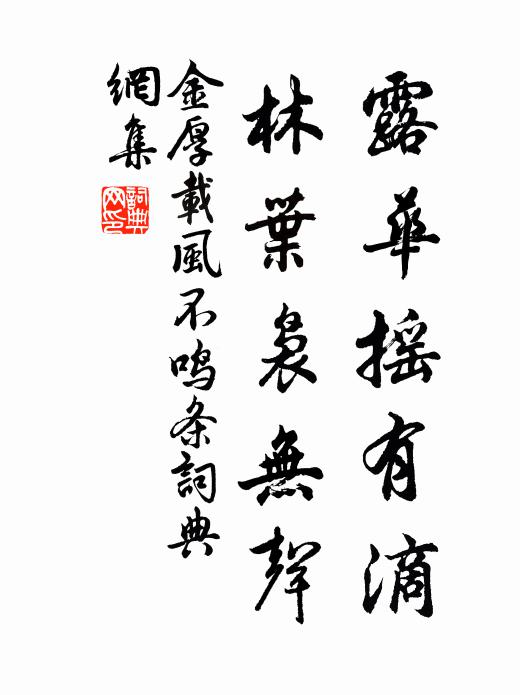 露華搖有滴
林葉裊無聲
金厚載風不鳴条詞典
網集
詞典
网印